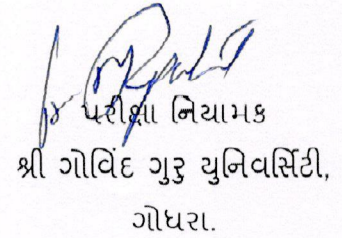 પરીક્ષા નિયામક
શ્રી ગોવિંદ ગુરુ યુનિવર્સિટી,
ગોધરા.